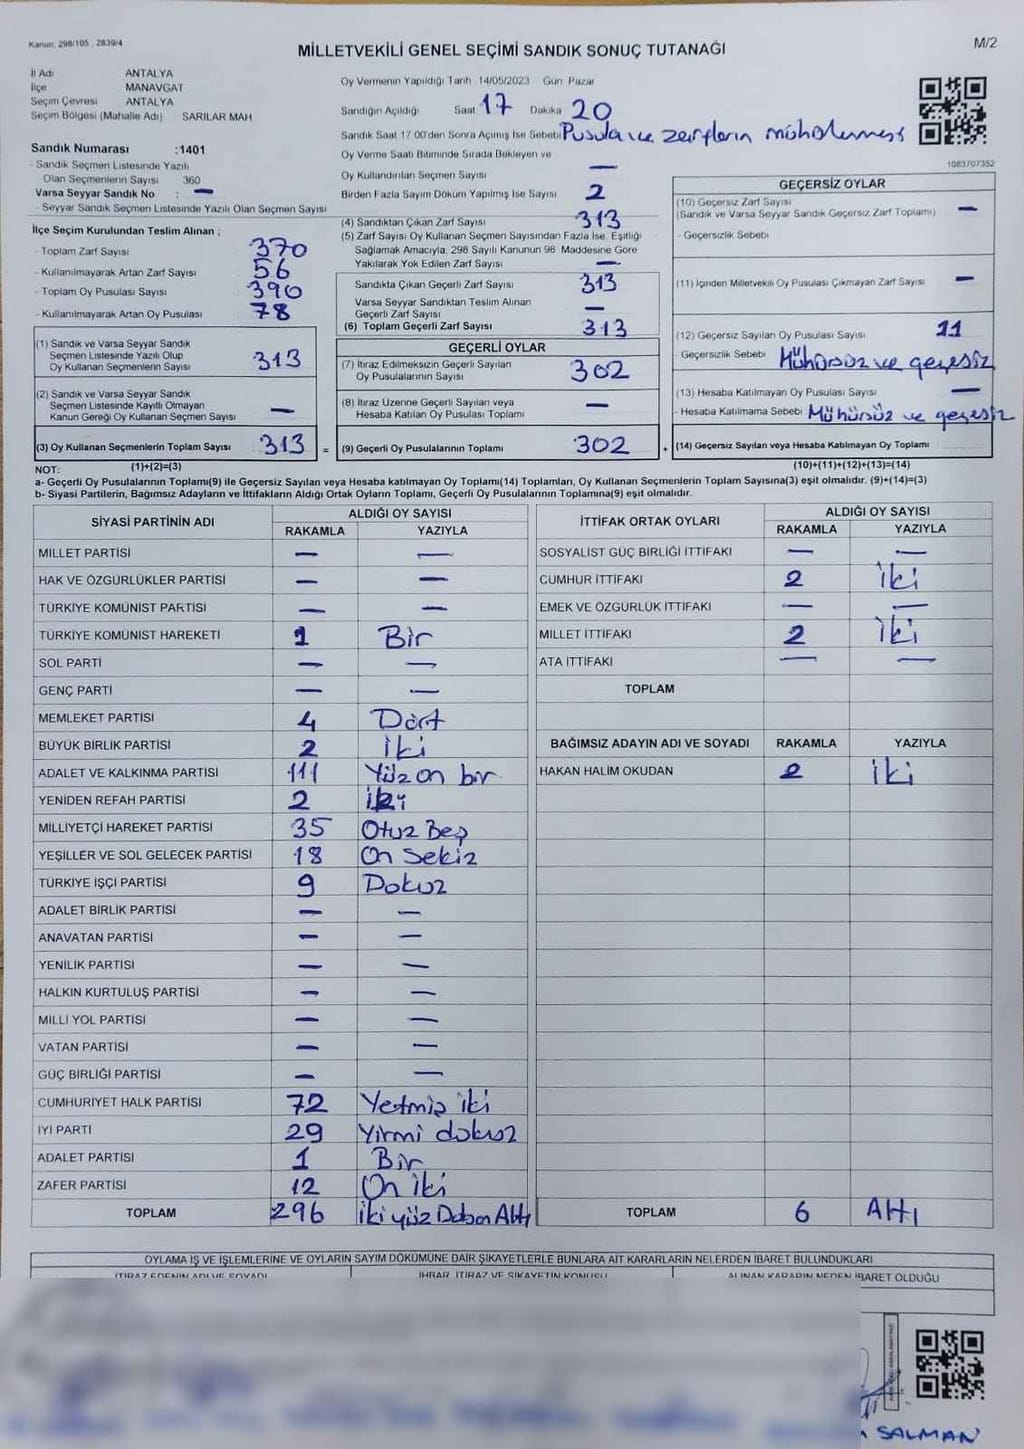 Kanun: 298/105 , 2839/4
MİLLETVEKİLİ GENEL SEÇİMİ SANDIK SONUÇ TUTANAĞI
M/2
İl Adı ANTALYA
İlçe MANAVGAT
Seçim Çevresi ANTALYA
Seçim Bölgesi (Mahalle Adı) SARILAR MAH
Sandık Numarası :1401
- Sandık Seçmen Listesinde Yazılı
Olan Seçmenlerin Sayısı 360
Varsa Seyyar Sandık No : —
- Seyyar Sandık Seçmen Listesinde Yazılı Olan Seçmen Sayısı
İlçe Seçim Kurulundan Teslim Alınan ;
- Toplam Zarf Sayısı 370
- Kullanılmayarak Artan Zarf Sayısı 56
- Toplam Oy Pusulası Sayısı 390
- Kullanılmayarak Artan Oy Pusulası 78
(1) Sandık ve Varsa Seyyar Sandık
Seçmen Listesinde Yazılı Olup
Oy Kullanan Seçmenlerin Sayısı 313
(2) Sandık ve Varsa Seyyar Sandık
Seçmen Listesinde Kayıtlı Olmayan
Kanun Gereği Oy Kullanan Seçmen Sayısı —
(3) Oy Kullanan Seçmenlerin Toplam Sayısı 313 =
Oy Vermenin Yapıldığı Tarih 14/05/2023 Gün: Pazar
Sandığın Açıldığı Saat 17 Dakika 20
Sandık Saat 17:00'den Sonra Açılmış İse Sebebi Pusula ve zarfların mühürlenmesi
Oy Verme Saati Bitiminde Sırada Bekleyen ve
Oy Kullandırılan Seçmen Sayısı —
Birden Fazla Sayım Döküm Yapılmış İse Sayısı 2
(4) Sandıktan Çıkan Zarf Sayısı 313
(5) Zarf Sayısı Oy Kullanan Seçmen Sayısından Fazla İse, Eşitliği
Sağlamak Amacıyla, 298 Sayılı Kanunun 98. Maddesine Göre
Yakılarak Yok Edilen Zarf Sayısı —
Sandıkta Çıkan Geçerli Zarf Sayısı 313
Varsa Seyyar Sandıktan Teslim Alınan
Geçerli Zarf Sayısı —
(6) Toplam Geçerli Zarf Sayısı 313
GEÇERLİ OYLAR
(7) İtiraz Edilmeksizin Geçerli Sayılan
Oy Pusulalarının Sayısı 302
(8) İtiraz Üzerine Geçerli Sayılan veya
Hesaba Katılan Oy Pusulası Toplamı —
(9) Geçerli Oy Pusulalarının Toplamı 302 +
1083707352
GEÇERSİZ OYLAR
(10) Geçersiz Zarf Sayısı
(Sandık ve Varsa Seyyar Sandık Geçersiz Zarf Toplamı) —
- Geçersizlik Sebebi
(11) İçinden Milletvekili Oy Pusulası Çıkmayan Zarf Sayısı —
(12) Geçersiz Sayılan Oy Pusulası Sayısı 11
- Geçersizlik Sebebi Mühürsüz ve geçersiz
(13) Hesaba Katılmayan Oy Pusulası Sayısı —
- Hesaba Katılmama Sebebi Mühürsüz ve geçersiz
(14) Geçersiz Sayılan veya Hesaba Katılmayan Oy Toplamı
NOT: (1)+(2)=(3) (10)+(11)+(12)+(13)=(14)
a- Geçerli Oy Pusulalarının Toplamı(9) ile Geçersiz Sayılan veya Hesaba katılmayan Oy Toplamı(14) Toplamları, Oy Kullanan Seçmenlerin Toplam Sayısına(3) eşit olmalıdır. (9)+(14)=(3)
b- Siyasi Partilerin, Bağımsız Adayların ve İttifakların Aldığı Ortak Oyların Toplamı, Geçerli Oy Pusulalarının Toplamına(9) eşit olmalıdır.
SİYASİ PARTİNİN ADI ALDIĞI OY SAYISI
RAKAMLA YAZIYLA
MİLLET PARTİSİ — —
HAK VE ÖZGÜRLÜKLER PARTİSİ — —
TÜRKİYE KOMÜNİST PARTİSİ — —
TÜRKİYE KOMÜNİST HAREKETİ 1 Bir
SOL PARTİ — —
GENÇ PARTİ — —
MEMLEKET PARTİSİ 4 Dört
BÜYÜK BİRLİK PARTİSİ 2 İki
ADALET VE KALKINMA PARTİSİ 111 Yüz on bir
YENİDEN REFAH PARTİSİ 2 iki
MİLLİYETÇİ HAREKET PARTİSİ 35 Otuz Beş
YEŞİLLER VE SOL GELECEK PARTİSİ 18 On Sekiz
TÜRKİYE İŞÇİ PARTİSİ 9 Dokuz
ADALET BİRLİK PARTİSİ — —
ANAVATAN PARTİSİ — —
YENİLİK PARTİSİ — —
HALKIN KURTULUŞ PARTİSİ — —
MİLLİ YOL PARTİSİ — —
VATAN PARTİSİ — —
GÜÇ BİRLİĞİ PARTİSİ — —
CUMHURİYET HALK PARTİSİ 72 Yetmiş iki
İYİ PARTİ 29 Yirmi dokuz
ADALET PARTİSİ 1 Bir
ZAFER PARTİSİ 12 On iki
TOPLAM 296 İki yüz Doksan Altı
İTTİFAK ORTAK OYLARI ALDIĞI OY SAYISI
RAKAMLA YAZIYLA
SOSYALİST GÜÇ BİRLİĞİ İTTİFAKI — —
CUMHUR İTTİFAKI 2 İki
EMEK VE ÖZGÜRLÜK İTTİFAKI — —
MİLLET İTTİFAKI 2 İki
ATA İTTİFAKI — —
TOPLAM
BAĞIMSIZ ADAYIN ADI VE SOYADI RAKAMLA YAZIYLA
HAKAN HALİM OKUDAN 2 iki
TOPLAM 6 Altı
OYLAMA İŞ VE İŞLEMLERİNE VE OYLARIN SAYIM DÖKÜMÜNE DAİR ŞİKAYETLERLE BUNLARA AİT KARARLARIN NELERDEN İBARET BULUNDUKLARI
İTİRAZ EDENİN ADI VE SOYADI İHBAR, İTİRAZ VE ŞİKAYETİN KONUSU ALINAN KARARIN NEDEN İBARET OLDUĞU
SALMAN